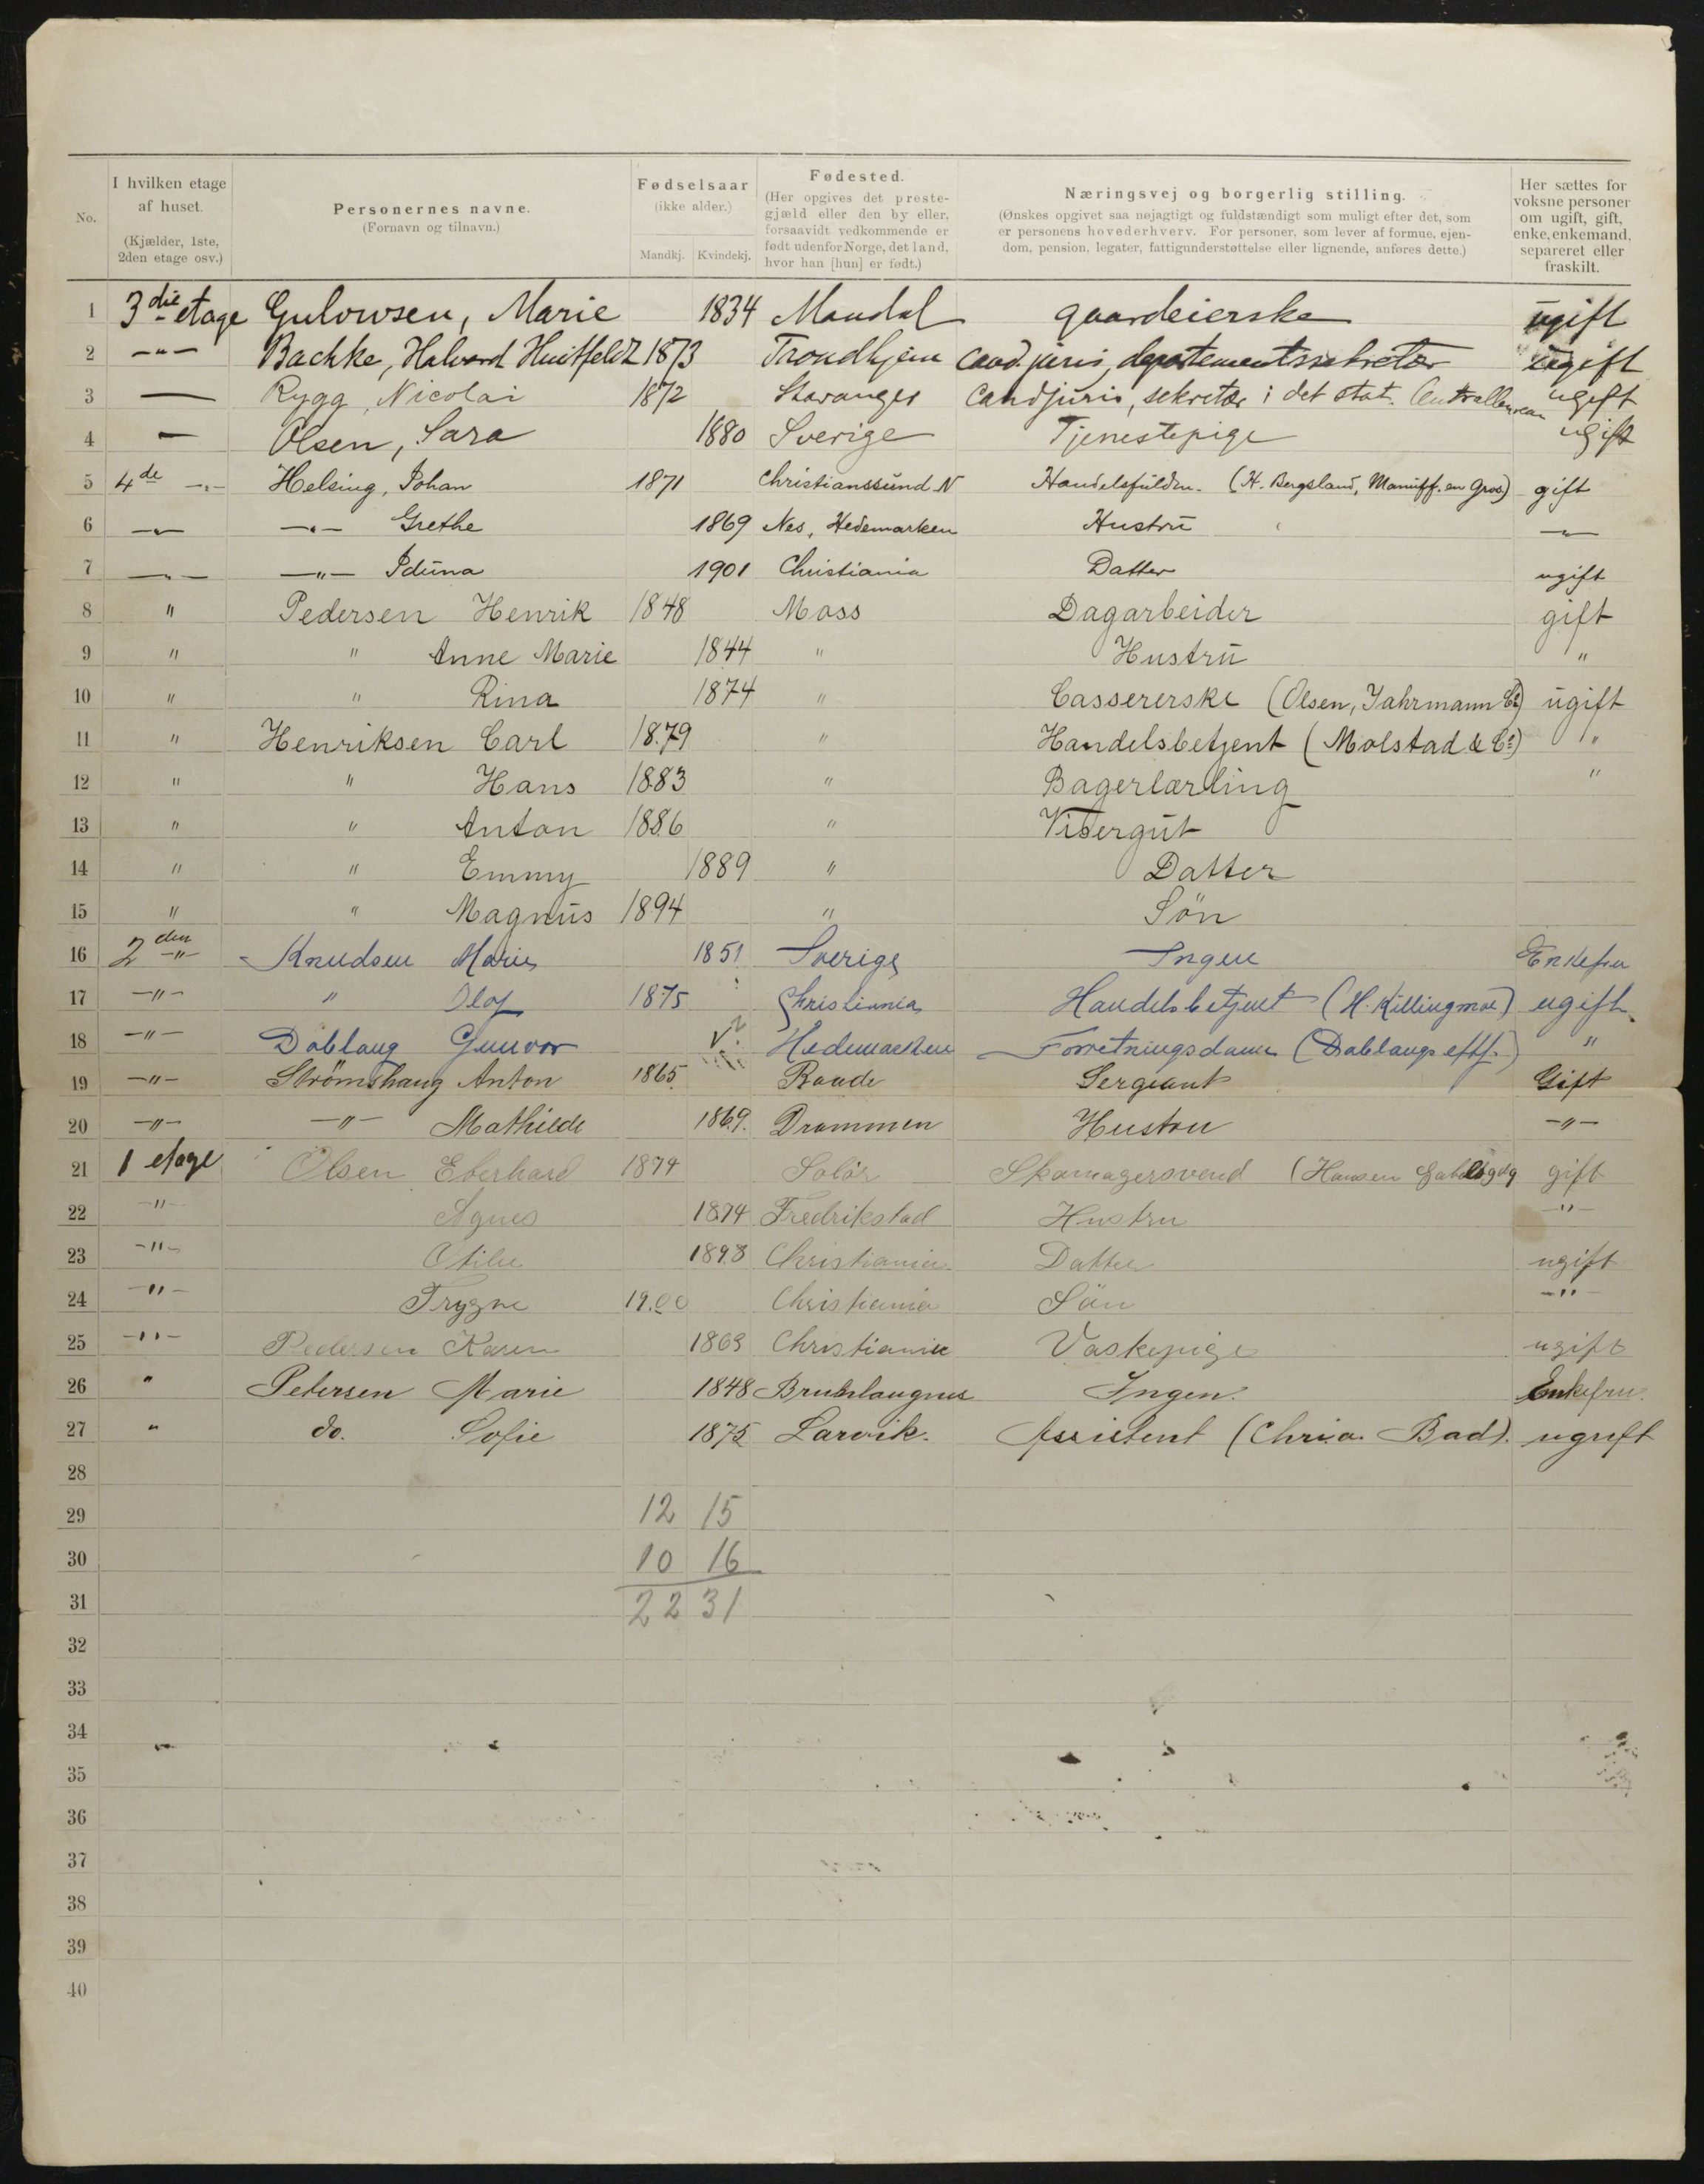 No.
I hvilken etage af huset. (Kjælder, 1ste, 2den etage osv.)
Personernes navne. (Fornavn og tilnavn.)
Fødselsaar (ikke alder.) Mandkj. Kvindekj.
Fødested. (Her opgives det prestegjæld eller den by eller, forsaavidt vedkommende er født udenfor Norge, det land, hvor han [hun] er født.)
Næringsvej og borgerlig stilling. (Ønskes opgivet saa nøjagtigt og fuldstændigt som muligt efter det, som er personens hovederhverv. For personer, som lever af formue, ejendom, pension, legater, fattigunderstøttelse eller lignende, anføres dette.)
Her sættes for voksne personer om ugift, gift, enke, enkemand, separeret eller fraskilt.
1 3die etage Gulowsen, Marie 1834 Mandal gaardeierske ugift
2 -"- Bachke, Halvard Huitfeldt 1873 Trondhjem cand. juris, departementssekretær ugift
3 — Rygg, Nicolai 1872 Stavanger Cand juris, sekretær i det stat. Centralbureau ugift
4 — Olsen, Sara 1880 Sverige Tjenestepige ugift
5 4de -"- Helsing, Johan 1871 Christianssund N Handelsfuldm. (H. Bergsland, Manuff. en Gros) gift
6 -"- -"- Grethe 1869 Nes, Hedemarken Hustrü -"-
7 -"- -"- Idüna 1901 Christiania Datter ugift
8 " Pedersen Henrik 1848 Moss Dagarbeider gift
9 " " Anne Marie 1844 " Hustrü "
10 " " Rina 1874 " Cassererske (Olsen, Jahrmann Co) ügift
11 " Henriksen Carl 1879 " Handelsbetjent (Molstad & Co) "
12 " " Hans 1883 " Bagerlærling "
13 " " Anton 1886 " Visergüt
14 " " Emmy 1889 " Datter
15 " " Magnüs 1894 " Sön
16 2den -"- Knudsen Marie 1851 Sverige Ingen Enkefru
17 -"- " Olaf 1875 Christiania Handelsbetjent (H. Killingmoe) ugift
18 -"- Döblaug Gunvor ? Hedemarken Forretningsdame (Døblaugs eftf.) "
19 -"- Strömshaug Anton 1865 Raade Sergeant Gift
20 -"- -"- Mathilde 1869. Drammen Hustru -"-
21 1 etage Olsen Eberhard 1874 Solör Skomagersvend (Hansen gift
22 -"- Agnes 1874 Fredrikstad Hustru -"-
23 -"- Otilie 1898 Christiania Datter ugift
24 -"- Trygve 1900 Christiania Sön -"-
25 -"- Pedersen Karen 1863 Christiania Vaskepige ugift
26 " Petersen Marie 1848 Brunlaugnes Ingen. Enkefru.
27 " do. Sofie 1875 Larvik. Assistent (Chria. Bad). ugift
28
29 12 15
30 10 16
31 22 31
32
33
34
35
36
37
38
39
40